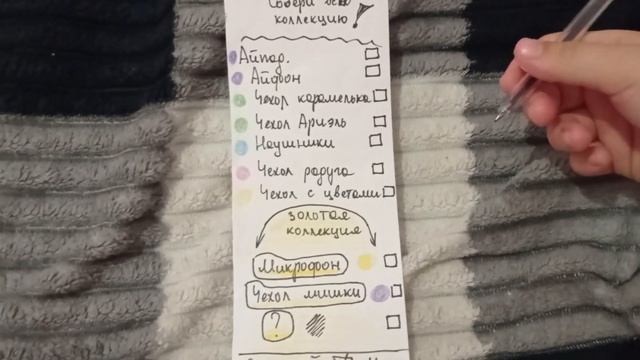 Собери всю
коллекцию!
Айпад.
Айфон
Чехол карамелька
Чехол Ариэль
Наушники
Чехол радуга
Чехол с цветами
золотая
коллекция
Микрофон
Чехол мишки
?